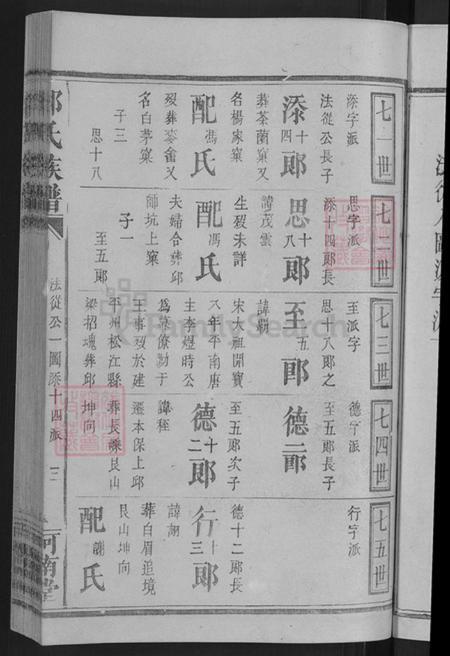 七一世
添字派
法從公長子
添十四郎
葬茶蘭窠又
名楊家窠
配馮氏
歿葬麥畬又
名白茅窠
子三
思十八
七二世
思字派
添十四郎長
思十八郎
諱茂雲
生歿未詳
配馮氏
夫婦合葬邱
師坑上窠
子一
至五郎
七三世
至派字
思十八郎之
至五郎
諱霸
宋太祖開寶
八年平南唐
主李煜時公
為
王事歿於建
平州松江縣
梁招魂葬邱
七四世
德字派
至五郎長子
德二郎
至五郎次子
德十二郎
諱程
遷本保上邱
葬長窠艮山
坤向
七五世
行字派
德十二郎長
行十三郎
諱翊
葬白眉造境
艮山坤向
配謝氏
氏族譜
法從公一圖添十四派
河南堂
FamilySearch